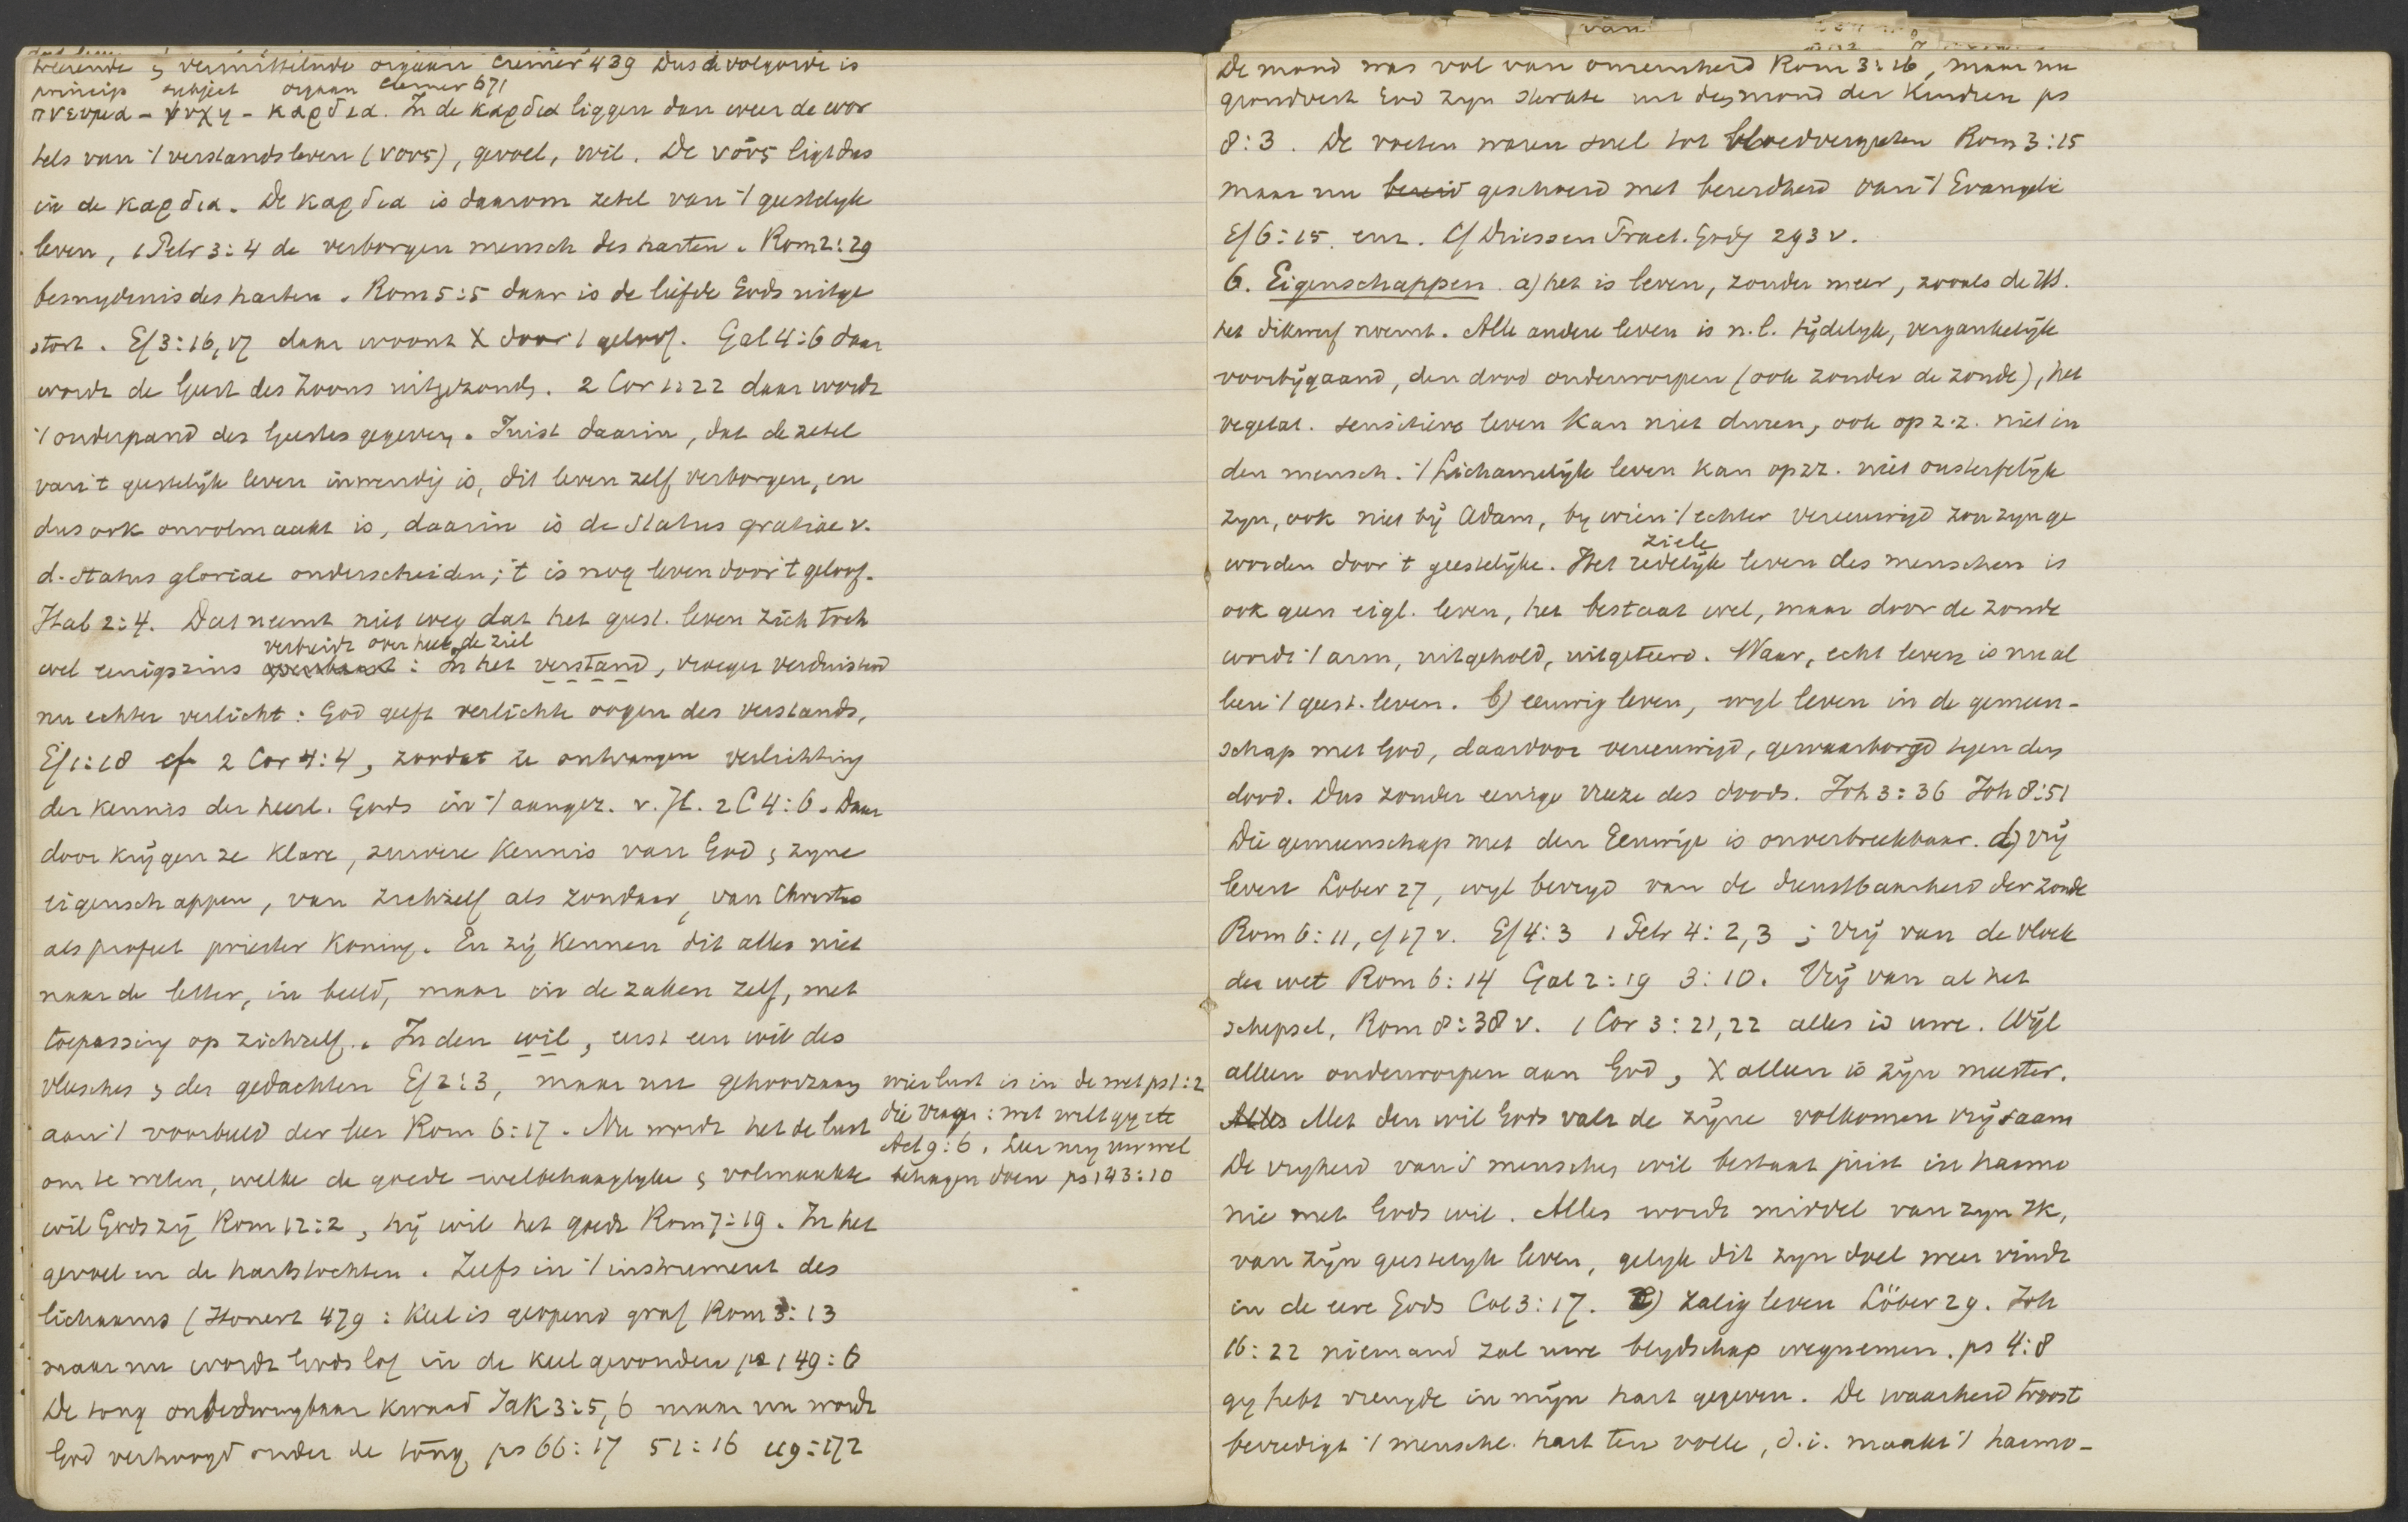 werende & vermittelnde orgaan Cremer 439 Dus de volgorde is
princip subject orgaan Cremer 671
πνευμα - ψυχη - καρδια. In de καρδια liggen dan weer de wor
tels van 't verstandsleven (νους), gevoel, wil. De νους ligt dus
in de καρδια. De καρδια is daarom zetel van 't geestelyk
leven, 1 Petr 3:4 de verborgen mensch des harten. Rom 2:29
besnydenis des harten. Rom 5:5 daar is de liefde Gods uitge
stort. Ef 3:16,17 daar woont X door 't geloof. Gal 4:6 daar
wordt de Geest des Zoons uitgezonden. 2 Cor 1:22 daar wordt
't onderpand des Geestes gegeven. Juist daarin, dat de zetel
van 't geestelijk leven inwendig is, dit leven zelf verborgen, en
dus ook onvolmaakt is, daarin is de status gratiae v.
d. status gloriae onderscheiden; 't is nog leven door 't geloof.
Hab 2:4. Dat neemt niet weg dat het geest. leven zich toch
verbreidt over heel de ziel
wel eenigszins openbaart: In het verstand, vroeger verduisterd
nu echter verlicht: God geeft verlichte oogen des verstands,
Ef 1:18 cf 2 Cor 4:4, zoodat ze ontvangen verlichting
der kennis der heerl. Gods in 't aangez. v. JC. 2 C 4:6. Daar
door krijgen ze klare, zuivere kennis van God & zyne
eigenschappen, van zichzelf als zondaar, van Christus
als profeet priester koning. En zij kennen dit alles niet
naar de letter, in beeld, maar in de zaken zelf, met
toepassing op zichzelf. In den wil, eerst een wil des
vleesches & der gedachten Ef 2:3, maar nu gehoorzaam
aan 't voorbeeld der leer Rom 6:17. Nu wordt het de lust
om te weten, welke de goede welbehaaglyke & volmaakte
wier lust is in de wet ps 1:2
die vragen: wat wilt gy etc
Act 9:6. Leer my uw wel
behagen doen ps 143:10
wil Gods zij Rom 12:2, hij wil het goede Rom 7:19. In het
gevoel en de hartstochten. Zelfs in 't instrument des
lichaams (Honert 479: Keel is geopend graf Rom 3:13
maar nu wordt Gods lof in de keel gevonden ps 149:6
De tong onbedwingbaar kwaad Jak 3:5,6 maar nu wordt
God verhoogd onder de tong ps 66:17 51:16 119:172
De mond was vol van onreinheid Rom 3:16, maar nu
grondvest God zyn sterkte uit den mond der kinderen ps
8:3. De voeten waren snel tot bloedvergieten Rom 3:15
maar nu bereid geschoeid met bereidheid van 't Evangelie
Ef 6:15. enz. Cf Driessen Pract. Godg 293 v.
6. Eigenschappen. a) het is leven, zonder meer, zooals de HS.
het dikwerf noemt. Alle andere leven is n.l. tydelyk, vergankelyk
voorbijgaand, den dood onderworpen (ook zonder de zonde), het
vegetat. sensitieve leven kan niet duren, ook op z.z. niet in
den mensch. 't Lichamelijk leven kan op zz. niet onsterfelijk
zyn, ook niet bij Adam, by wien 't echter vereeuwigd zou zyn ge
ziele
worden door 't geestelijke. Het redelijk leven des menschen is
ook geen eigl. leven, het bestaat wel, maar door de zonde
wordt 't arm, uitgehold, uitgeteerd. Waar, echt leven is nu al
leen 't geest. leven. b) eeuwig leven, wyl leven in de gemeen-
schap met God, daardoor vereeuwigd, gewaarborgd tegen den
dood. Dus zonder eenige vreeze des doods. Joh 3:36 Joh 8:51
Die gemeenschap met den Eeuwige is onverbreekbaar. d) vrij
leven Lober 27, wyl bevryd van de dienstbaarheid der zonde
Rom 6:11, cf 17 v. Ef 4:3 1 Petr 4:2,3; Vrij van de vloek
der wet Rom 6:14 Gal 2:19 3:10. Vrij van al het
schepsel, Rom 8:38 v. 1 Cor 3:21,22 alles is uwe. Wijl
alleen onderworpen aan God, X alleen is zijn meester.
Alles Met den wil Gods valt de zijne volkomen vrij saam
De vryheid van 's menschen wil bestaat juist in harmo
nie met Gods wil. Alles wordt middel van zyn IK,
van zijn geestelyk leven, gelyk dit zyn doel weer vindt
in de eere Gods Col 3:17. e) Zalig leven Löber 29. Joh
16:22 niemand zal uwe blydschap wegnemen. ps 4:8
gy hebt vreugde in mijn hart gegeven. De waarheid troost
bevredigt 't mensche. hart ten volle, d.i. maakt 't harmo-